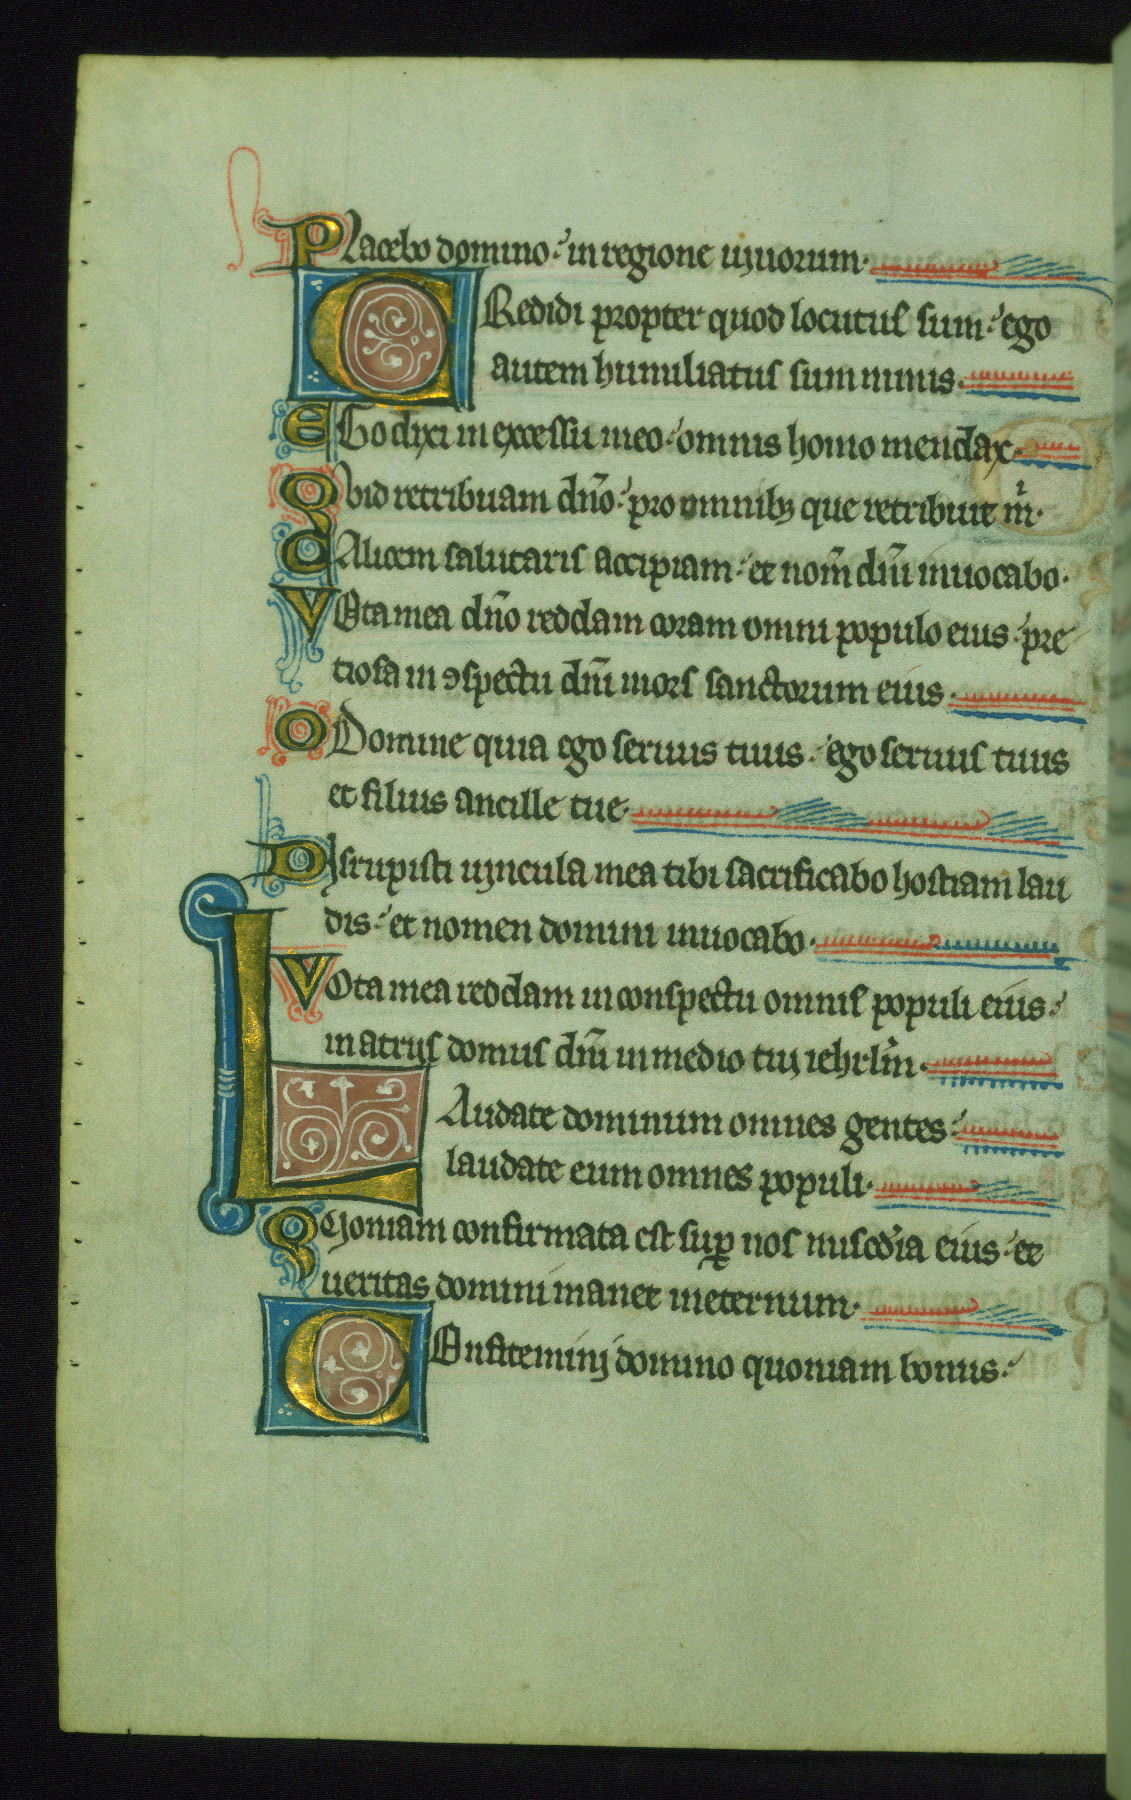 Placebo domino in regione uiuorum.
Credidi propter quod locutus sum ego
autem humiliatus sum nimis.
Ego dixi in excessu meo omnis homo mendax.
Quid retribuam dn̄o pro omnibꝫ que retribuit m̄ⁱ.
Calicem salutaris accipiam et nom̄ dn̄i inuocabo.
Vota mea dn̄o reddam coram omni populo eius pre
tiosa in ꝯspectu dn̄i mors sanctorum eius.
O Domine quia ego seruus tuus. ego seruus tuus
et filius ancille tue.
Disrupisti uincula mea tibi sacrificabo hostiam lau
dis et nomen domini inuocabo.
Vota mea reddam in conspectu omnis populi eius
in atrijs domus dn̄i in medio tui iehrl̄m.
Laudate dominum omnes gentes
laudate eum omnes populi.
Quoniam confirmata est suꝑ nos misc̄dia eius et
ueritas domini manet ineternum.
Confitemini domino quoniam bonus